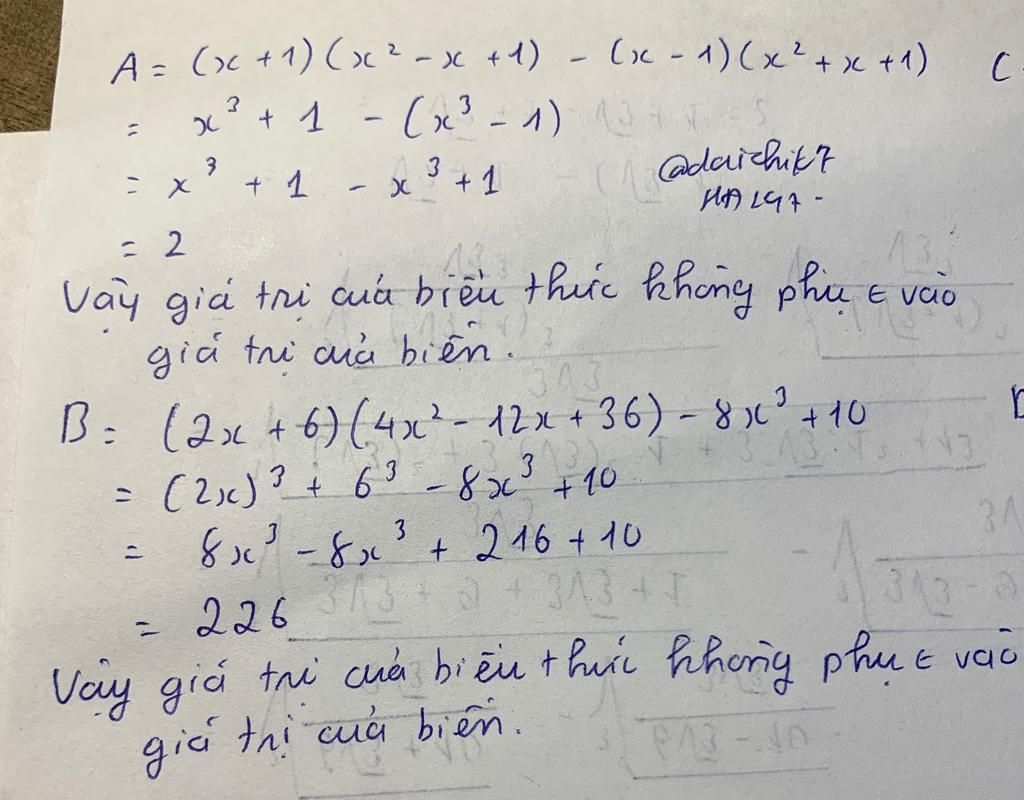 A = (x + 1)(x² - x + 1) - (x - 1)(x² + x + 1) C
= x³ + 1 - (x³ - 1)
= x³ + 1 - x³ + 1
@daichik7
= 2
Vậy giá trị của biểu thức không phụ ∈ vào
giá trị của biến.
B = (2x + 6)(4x² - 12x + 36) - 8x³ + 10
= (2x)³ + 6³ - 8x³ + 10
= 8x³ - 8x³ + 216 + 10
= 226
Vậy giá trị của biểu thức không phụ ∈ vào
giá trị của biến.